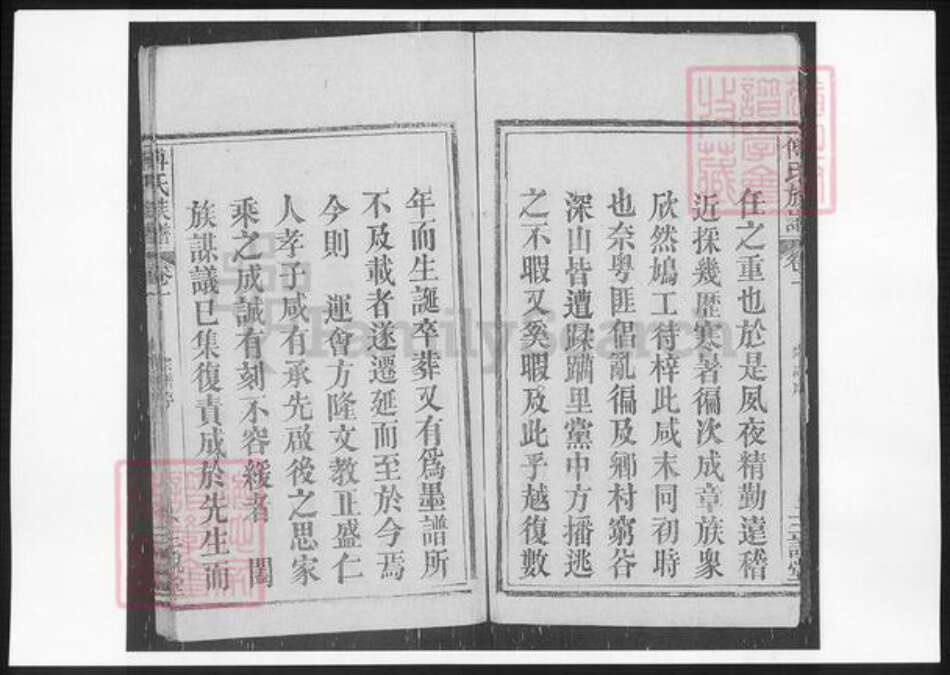 傅氏族譜
任之重也於是夙夜精勤遠稽
近探幾歷寒暑徧次成章族衆
欣然鳩工待梓此咸末同初時
也奈粤匪倡亂徧及鄉村窮谷
深山皆遭蹂躪里黨中方播逃
之不暇又奚暇及此乎越復數
年而生誕卒葬又有爲墨譜所
不及載者遂遷延而至於今焉
今則 運會方隆文教正盛仁
人孝子咸有承先啟後之思家
乘之成誠有刻不容緩者 闔
族謀議已集復責成於先生而
傅氏族譜 卷一
FamilySearch